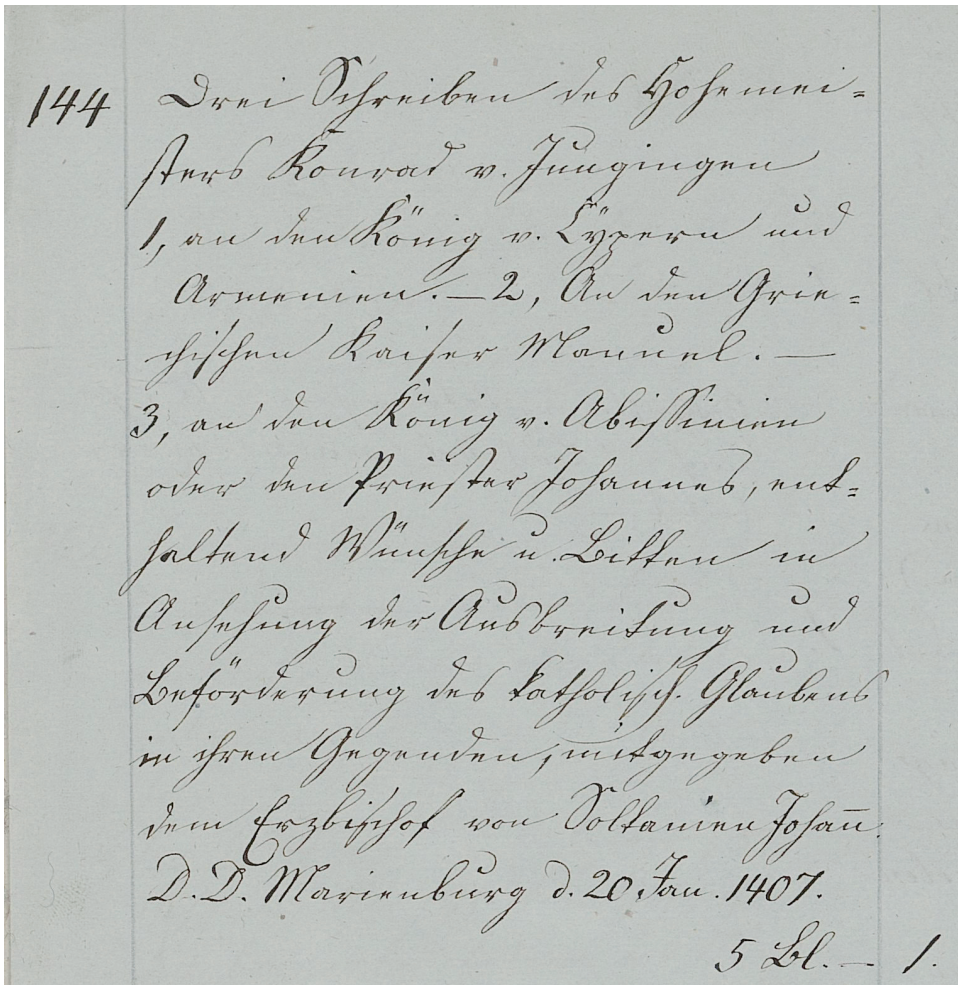 144 Drei Schreiben des Hohemei=
sters Konrad v. Jungingen
1, an den König v. Cÿpern und
Armenien. — 2, An den Grie=
chischen Kaiser Manuel. —
3, an den König v. Abissinien
oder den Priester Johannes, ent=
haltend Wünsche u. Bitten in
Ansehung der Ausbreitung und
Beförderung des katholisch. Glaubens
in ihren Gegenden, mitgegeben
dem Erzbischof von Soltanien Johan̄.
D. D. Marienburg d. 20 Jan. 1407.
5 Bl. — 1.